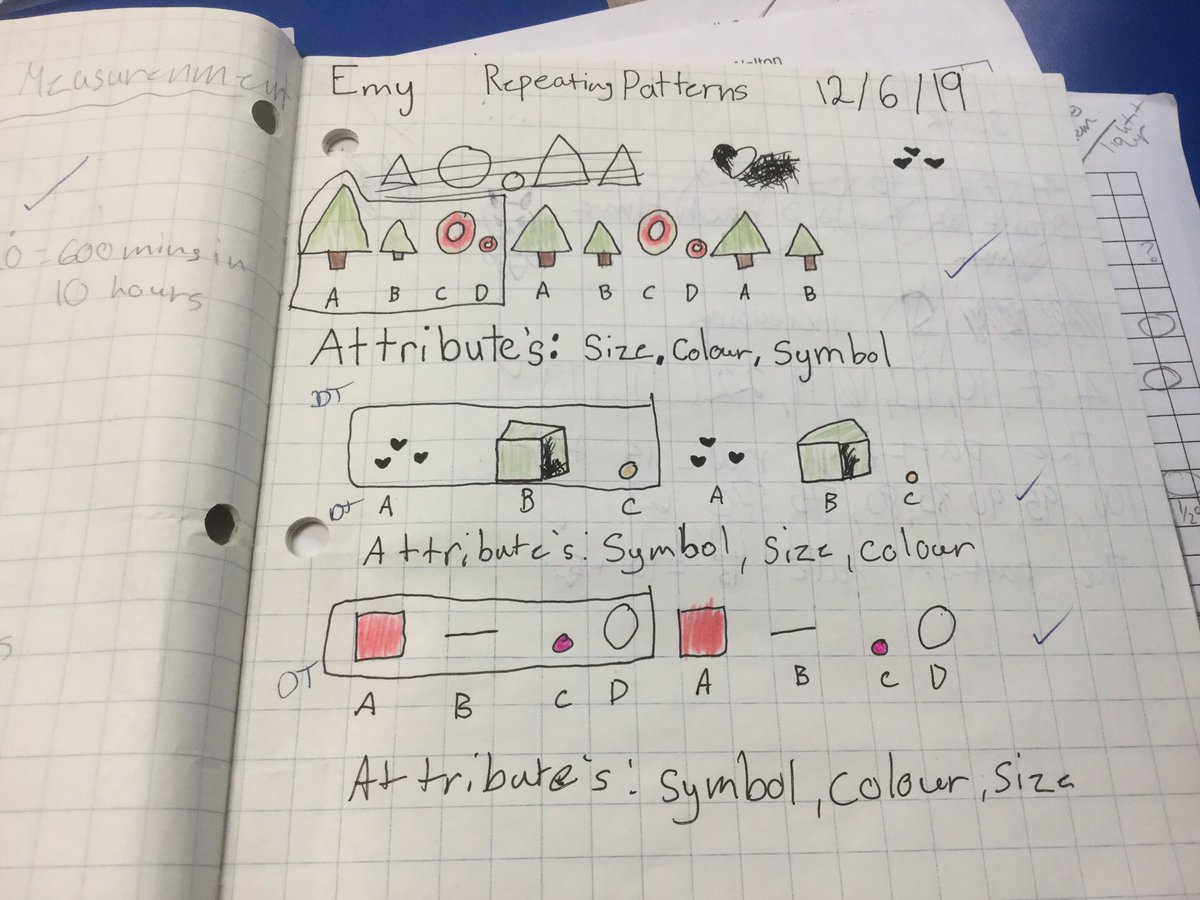 Measurement
= 600 mins in
10 hours
Emy Repeating Patterns 12/6/19
A B C D A B C D A B
Attribute's: Size, Colour, Symbol
DT
A B C A B C
DT
Attribute's: Symbol, Size, Colour
A B C D A B C D
DT
Attribute's: Symbol, Colour, Size